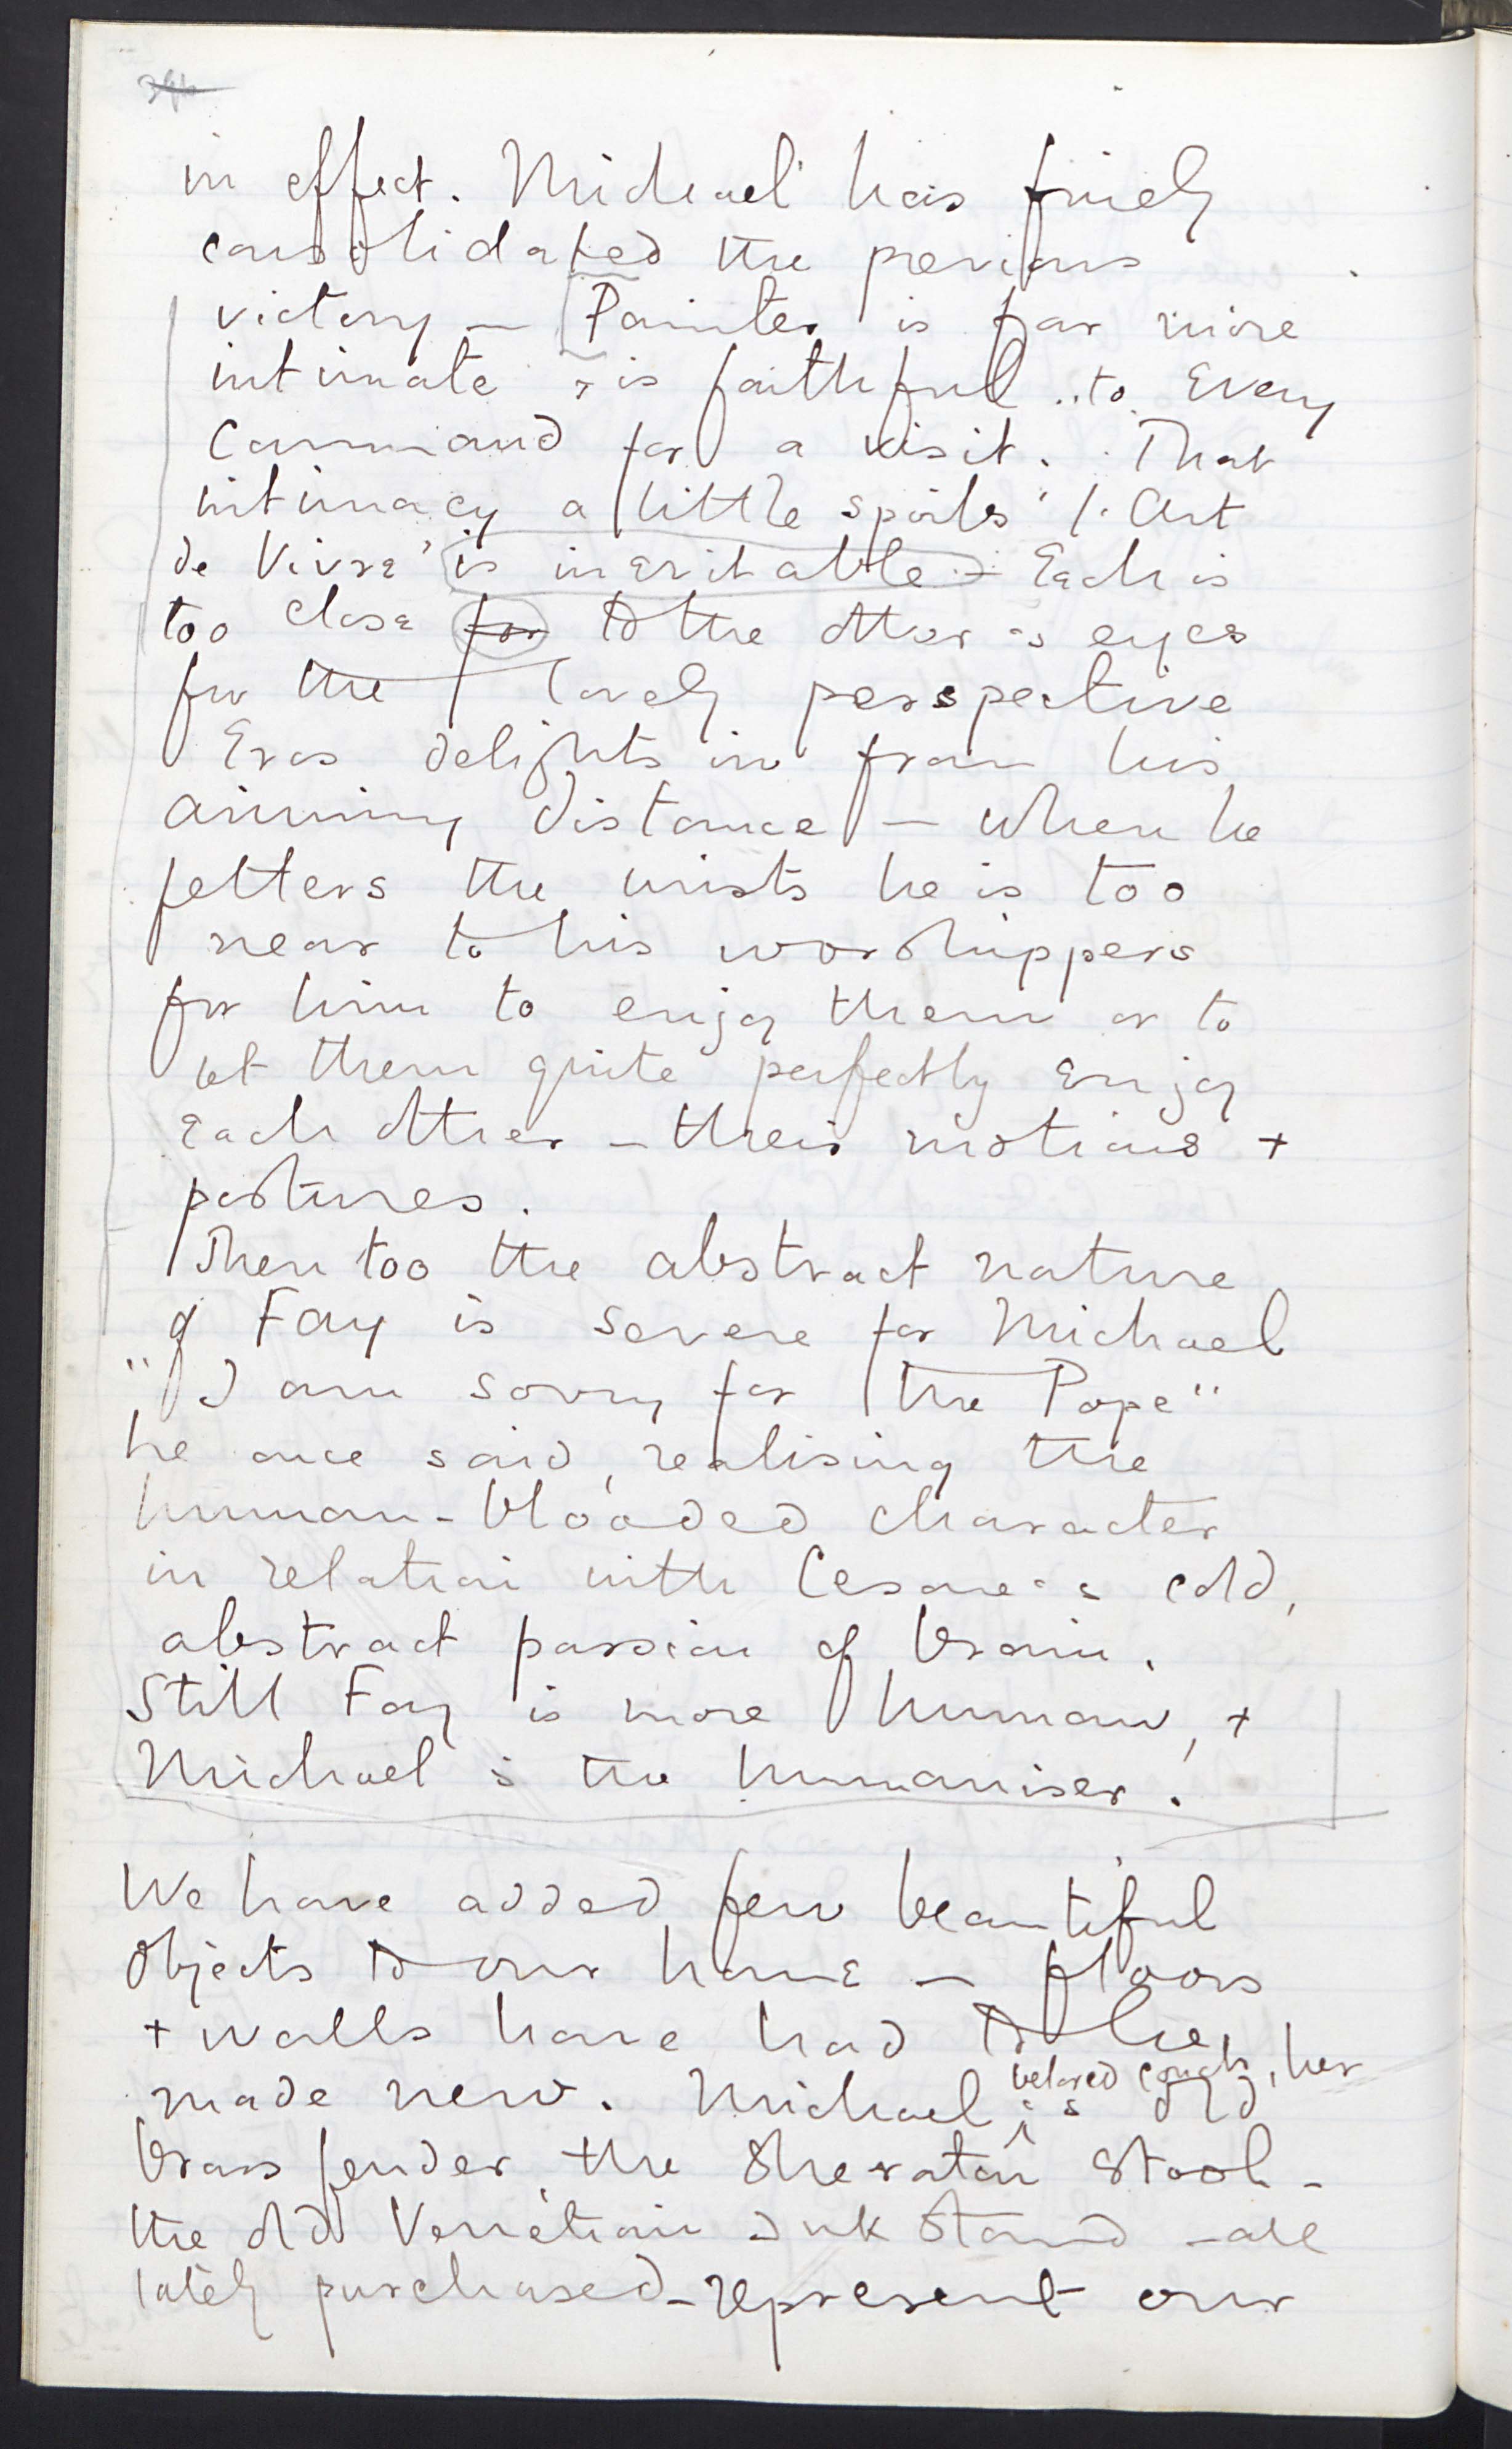 in effect. Michael has finely
consolidated the previous
victory — Painter is far more
intimate + is faithful to Every
Command for a visit. That
intimacy a little spoils 'l'Art
de Vivre' is inevitable — Each is
too close for to the other's eyes
for the lovely perspective
Eros delights in from his
aiming distance — when he
fetters the wrists he is too
near to his worshippers
for him to enjoy them or to
let them quite perfectly enjoy
Each other — their motions +
postures.
Then too the abstract nature
of Fay is severe for Michael
"I am sorry for the Pope"
he once said, realising the
human-blooded character
in relation with Cesare's cold,
abstract passion of brain.
Still Fay is more human, +
Michael is the humaniser.
We have added few beautiful
Objects to our home — floors
+ walls have had to be
made new. Michael's beloved couch, her old
brass fender, the Sheraton Stool —
the old Venetian Ink Stand — all
lately purchased — represent our